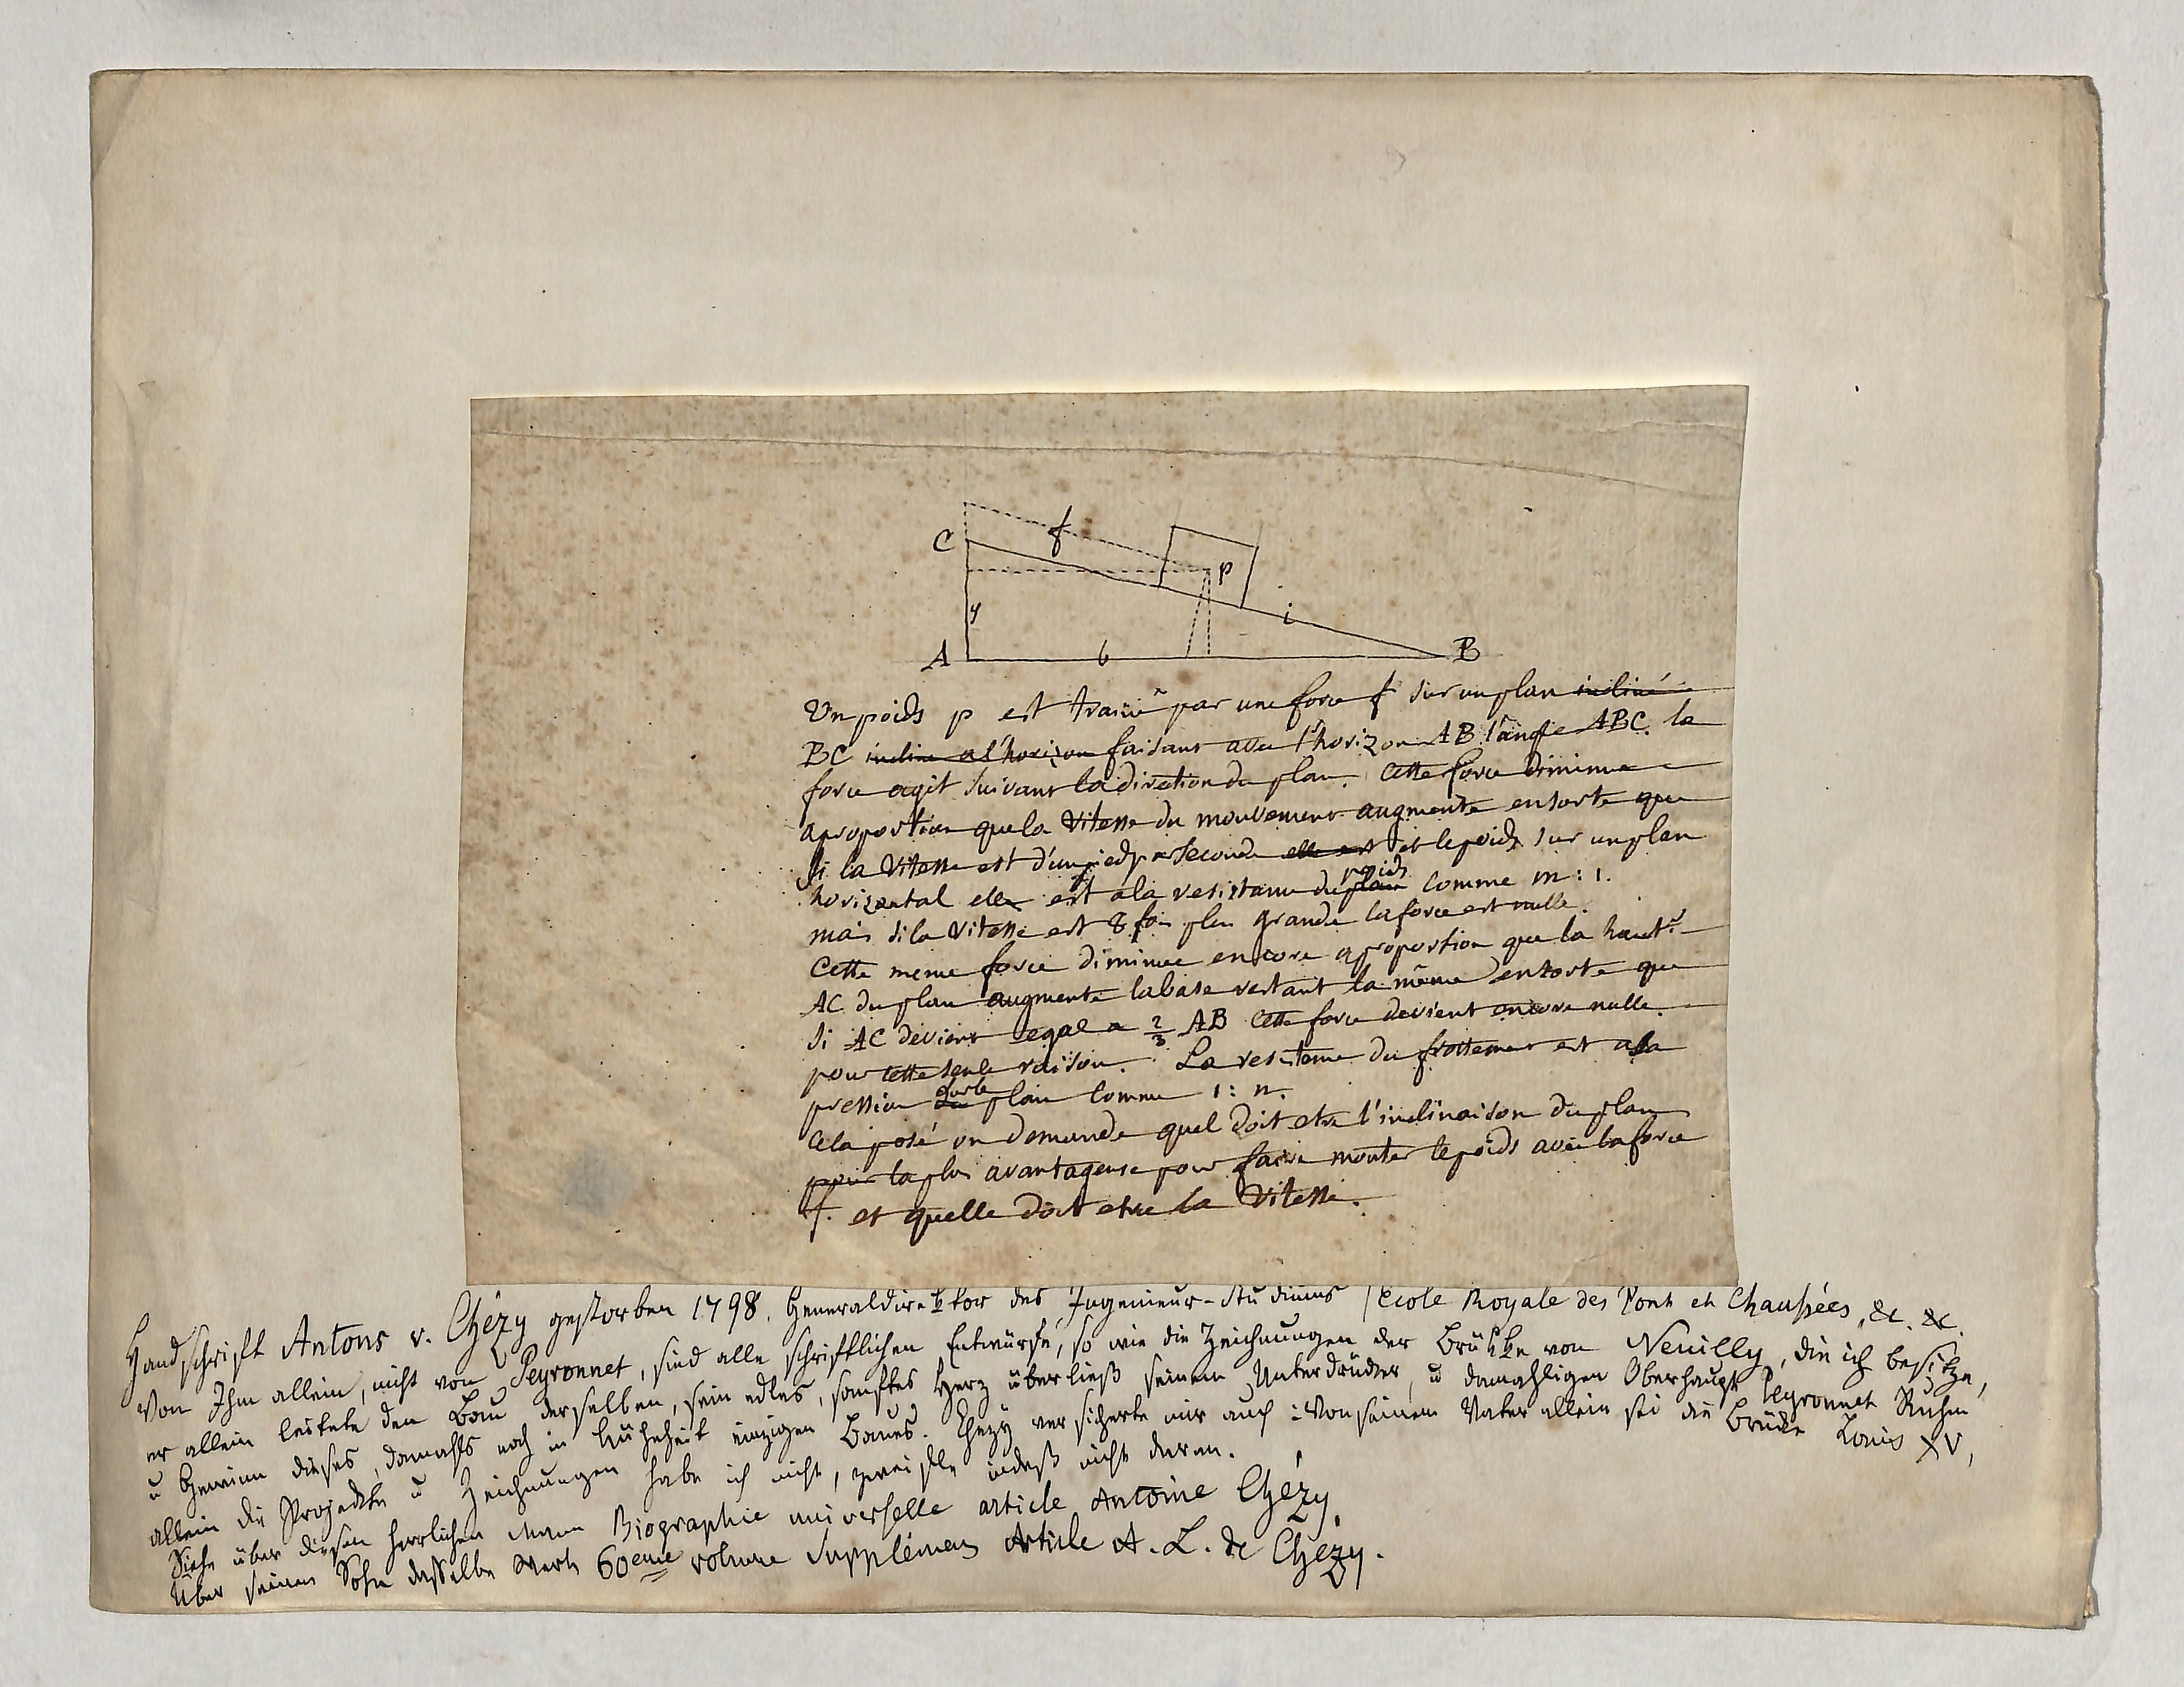 C
f
p
y
i
A
b
B
Un poids p est trainé par une force f sur un plan incliné
BC incliné a l'horizon faisant avec l'horizon AB l'angle ABC. la
force agit suivant la direction du plan. Cette force diminue
a proportion que la vitesse du mouvement augmente ensorte que
si la vitesse est d'un pied par seconde elle est et le poids sur un plan
horizontal elle est a la resistance du plan poids comme m : 1.
mais si la vitesse est 8 fois plus grande la force est nulle.
Cette meme force diminue encore a proportion que la hautr
AC du plan augmente la base restant la même ensorte que
si AC devient egal a 2/3 AB cette force devient encore nulle.
pour cette seule raison. La resistance du frottement est a la
pression du sur le plan comme 1 : n.
Cela posé on demande quel doit etre l'inclinaison du plan
pour la plus avantageuse pour faire monter le poids avec la force
f. et quelle doit etre la vitesse.
Handschrift Antons v. Chézy gestorben 1798. Generaldirektor des Ingenieur-Studiums /École Royale des Pont et Chaussées, &c. &c.
Von Ihm allein, nicht von Peyronnet, sind alle schriftlichen Entwürfe, so wie die Zeichnungen der Brükke von Neuilly, die ich besitze,
er allein leitete den Bau derselben, sein edles, sanftes Herz überließ seinem Unterdrücker, u damahligen Oberhaupt Peyronnet Ruhm
u Gewinn dieses, damahls noch in Kühnheit einzigen Baues. Chezy versicherte mir auch: Von seinem Vater allein sei die Brücke Louis XV,
allein die Projekte u Zeichnungen habe ich nicht, zweifle indeß nicht daran.
Siehe über diesen herrlichen Mann Biographie universelle article Antoine Chézy,
Über seinen Sohn dasselbe Werk 60eme volume Supplément Article A. L. de Chézy.